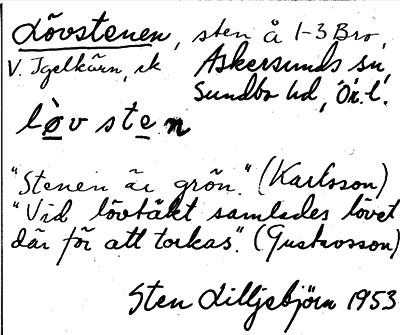 Lövstenen, sten å 1-3 Bro,
V. Igelkärn, ek Askersunds sn,
Sundbo hd, Ör. l.
lö̀v sten
"Stenen är grön." (Karlsson)
"Vid lövtäkt samlades lövet
där för att torkas." (Gustavsson)
Sten Lilljebjörn 1953